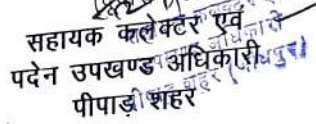 सहायक कलेक्टर एवं
पदेन उपखण्ड अधिकारी
पीपाड़ शहर
शहर (जोधपुर)